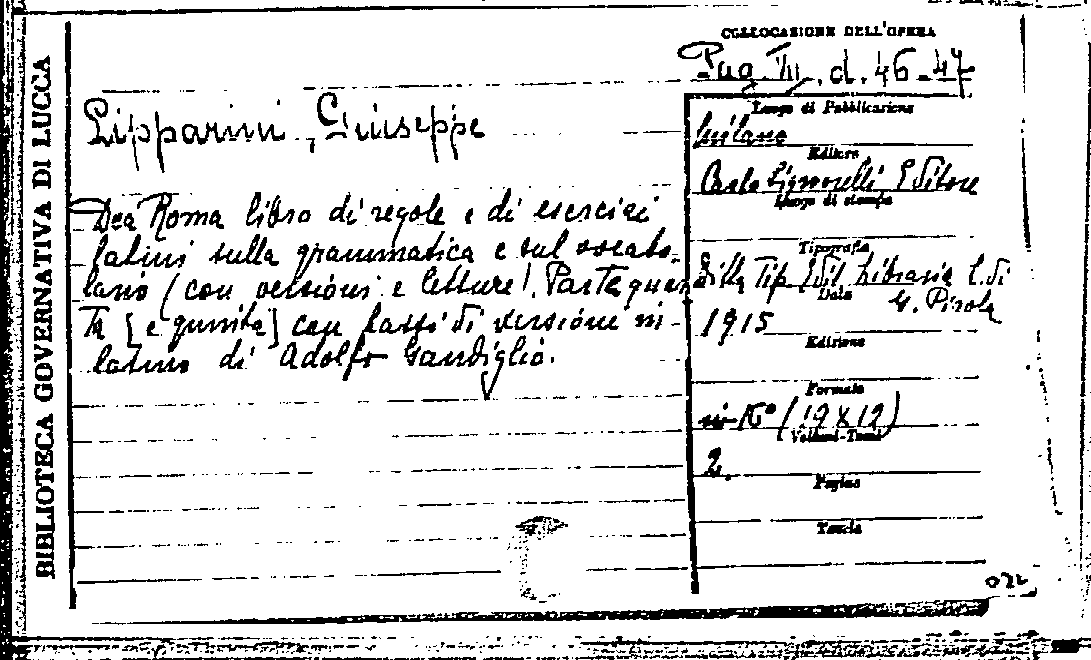 BIBLIOTECA GOVERNATIVA DI LUCCA
COLLOCAZIONE DELL'OPERA
III. d. 46-47
Lipparini, Giuseppe
Dea Roma libro di regole e di esercizi
latini sulla grammatica e sul vocabo-
lario (con versioni e letture). Parte quar
ta [e quinta] con passi di versione in
latino di Adolfo Gandiglio.
Luogo di Pubblicazione
Milano
Editore
Carlo Signorelli, Editore
Luogo di stampa
Tipografia
Ditta Tip. Edit. Libraria L. di
G. Pirola
Data
1915
Edizione
Formato
in-16° (19X12)
Volumi-Tomi
2.
Pagine
Tavole